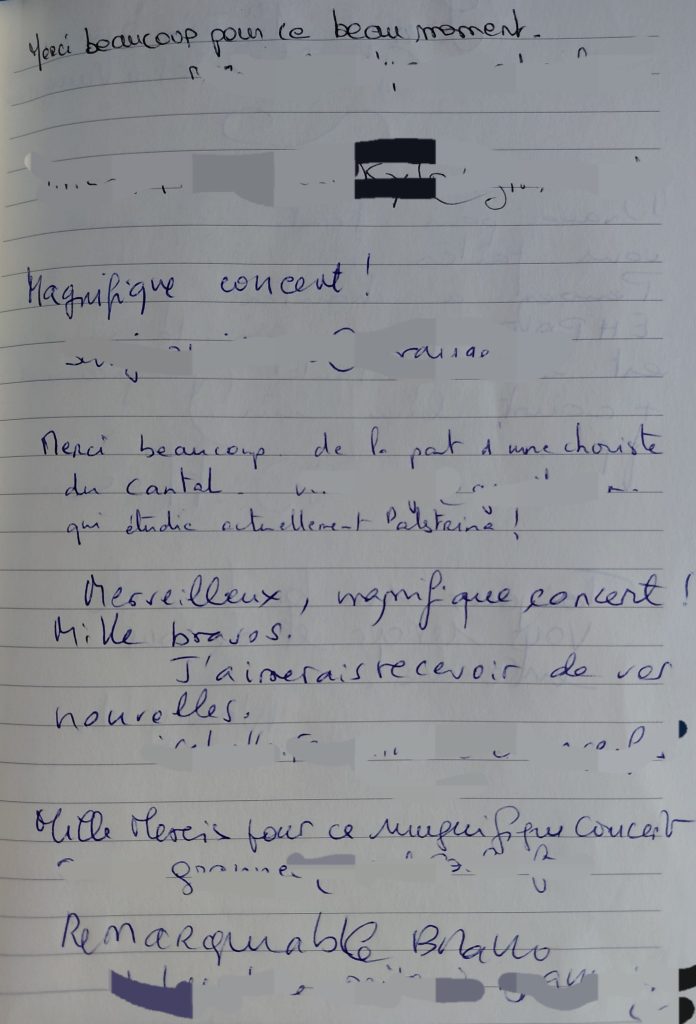 Merci beaucoup pour ce beau moment.
Magnifique concert !
Merci beaucoup de la part d'une choriste
du Cantal.
qui étudie actuellement Palstrina !
Merveilleux, magnifique concert !
Mille bravos.
J'aimerais recevoir de vos
nouvelles.
Mille Mercis pour ce magnifique Concert
Remarquable Bravo